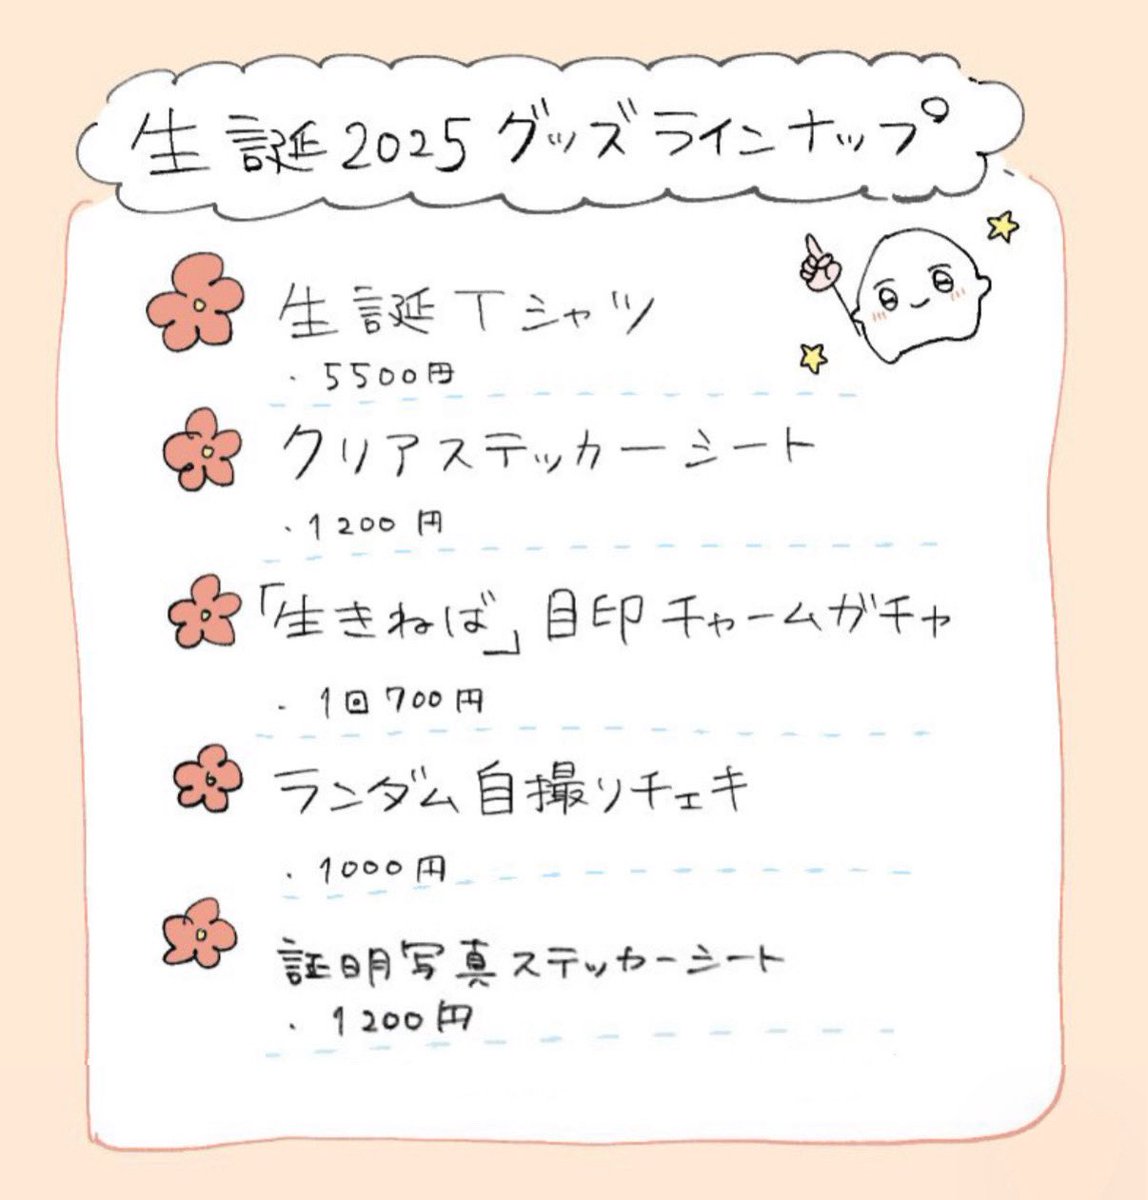 生誕2025グッズラインナップ
生誕Tシャツ
・5500円
クリアステッカーシート
・1200円
「生きねば」目印チャームガチャ
・1回700円
ランダム自撮りチェキ
・1000円
証明写真ステッカーシート
・1200円